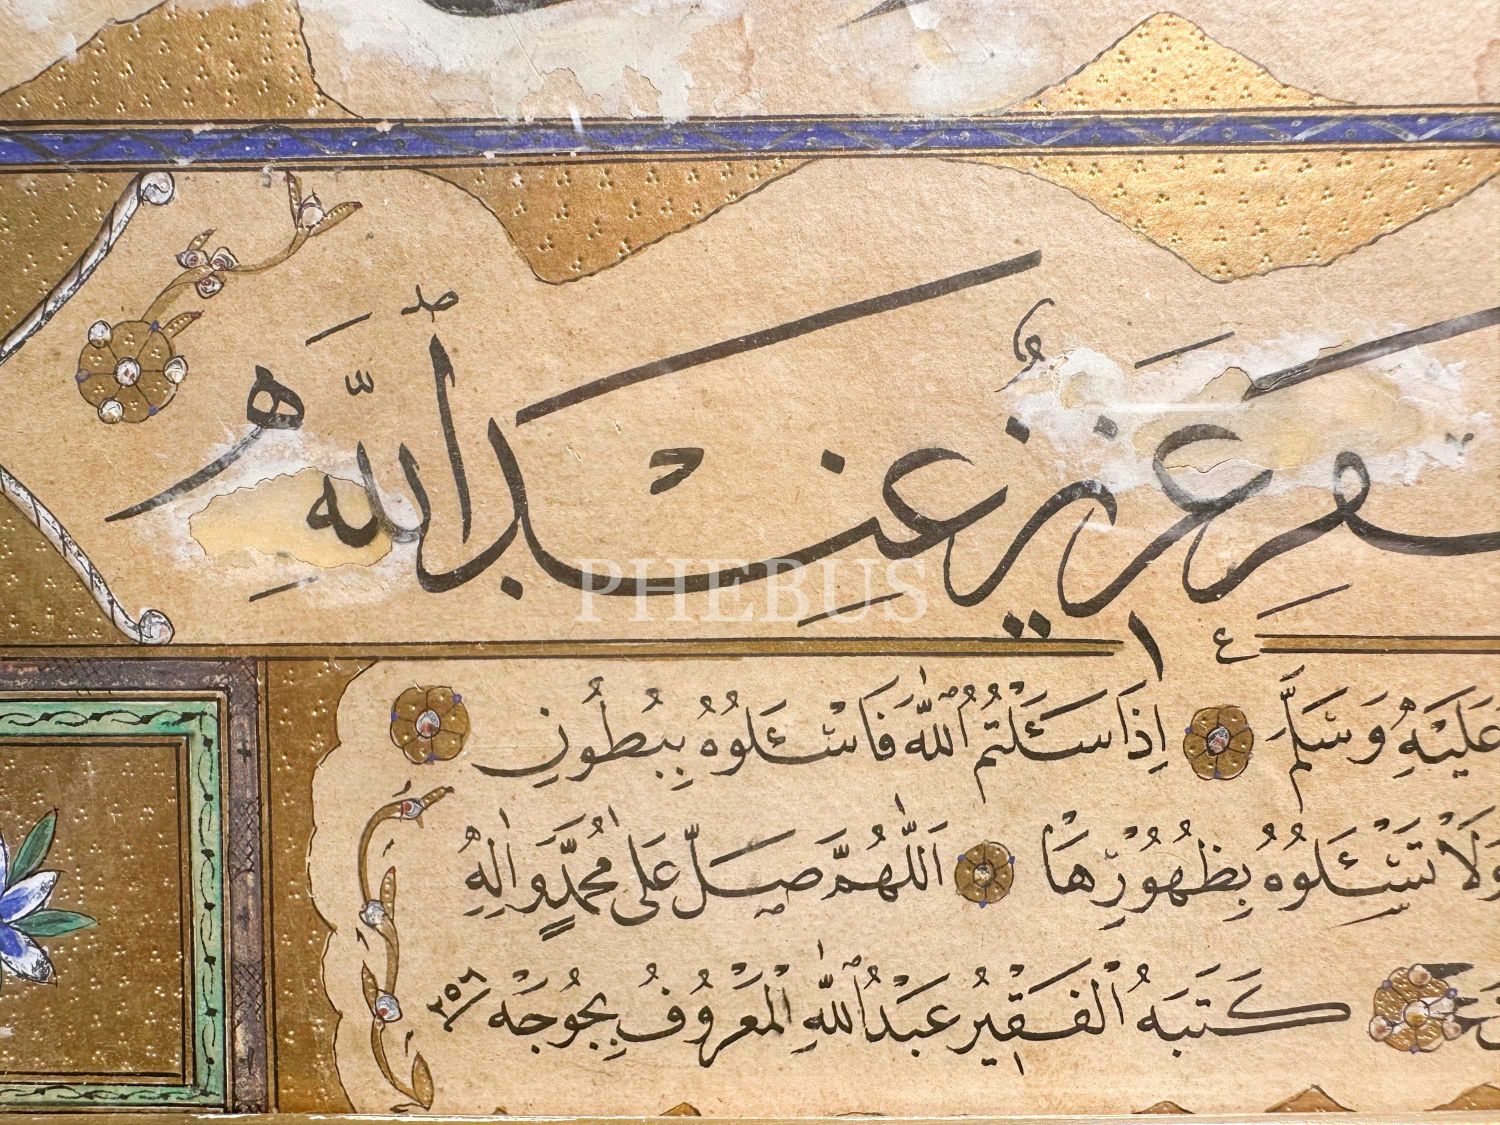 عَزِيزٌ عِنْدَ اللّٰهِ
PHEBUS
عَلَيْهِ وَسَلَّمَ اِذَا سَئَلْتُمُ اللّٰهَ فَاسْئَلُوهُ بِبُطُونِ
وَلَا تَسْئَلُوهُ بِظُهُورِهَا اَللّٰهُمَّ صَلِّ عَلٰى مُحَمَّدٍ وَاٰلِهِ
كَتَبَهُ الْفَقِيرُ عَبْدُ اللّٰهِ الْمَعْرُوفُ بِجُوجَهْ